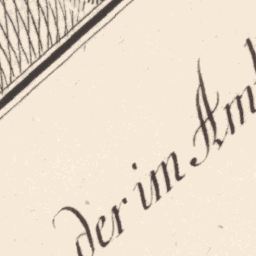 der im Am